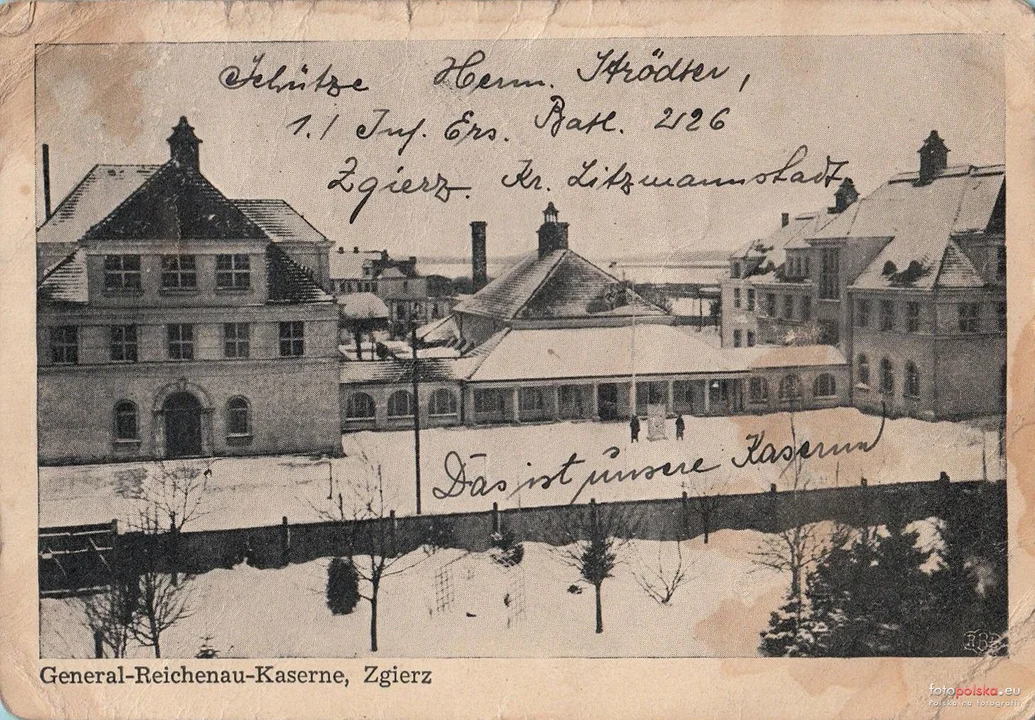 Schütze Herm. Strödter,
1./ Inf. Ers. Batl. 226
Zgierz. Kr. Litzmannstadt.
Das ist unsere Kaserne
General-Reichenau-Kaserne, Zgierz
fotopolska.eu
Polska na fotografii